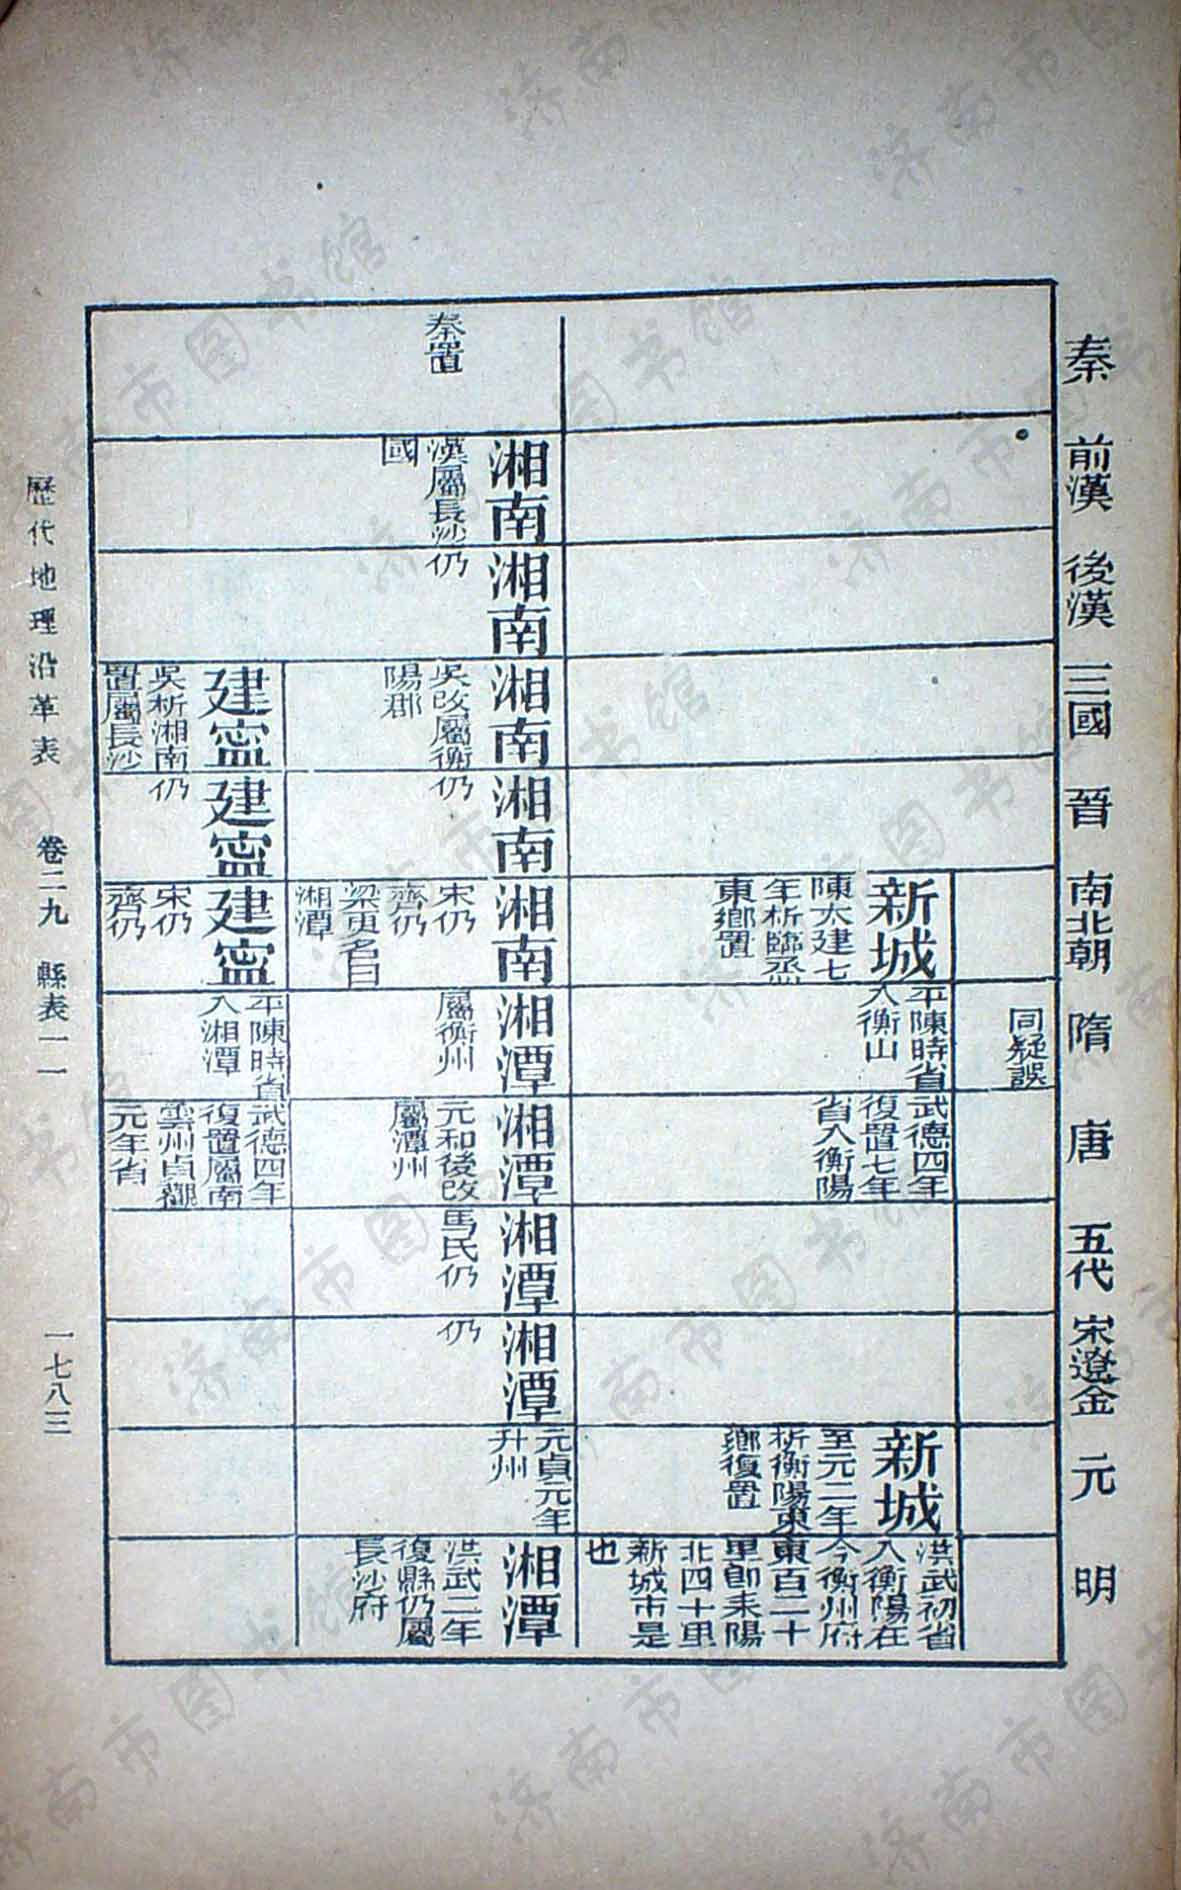 秦
前漢
後漢
三國
晉
南北朝
隋
唐
五代
宋遼金
元
明
同疑誤
新城
陳太建七
年析臨烝
東鄉置
平陳時省
入衡山
武德四年
復置七年
省入衡陽
新城
至元二年
析衡陽東
鄉復置
洪武初省
入衡陽在
今衡州府
東百二十
里卽耒陽
北四十里
新城市是
也
秦置
湘南
漢屬長沙
國
湘南
仍
湘南
吳改屬衡
陽郡
湘南
仍
湘南
宋仍
齊仍
梁更名曰
湘潭
湘潭
屬衡州
湘潭
元和後改
屬潭州
湘潭
馬氏仍
湘潭
仍
元貞元年
升州
湘潭
洪武二年
復縣仍屬
長沙府
建寧
吳析湘南
置屬長沙
建寧
仍
建寧
宋仍
齊仍
平陳時省
入湘潭
武德四年
復置屬南
雲州貞觀
元年省
歷代地理沿革表 卷二九 縣表一一 一七八三
济南市图书馆